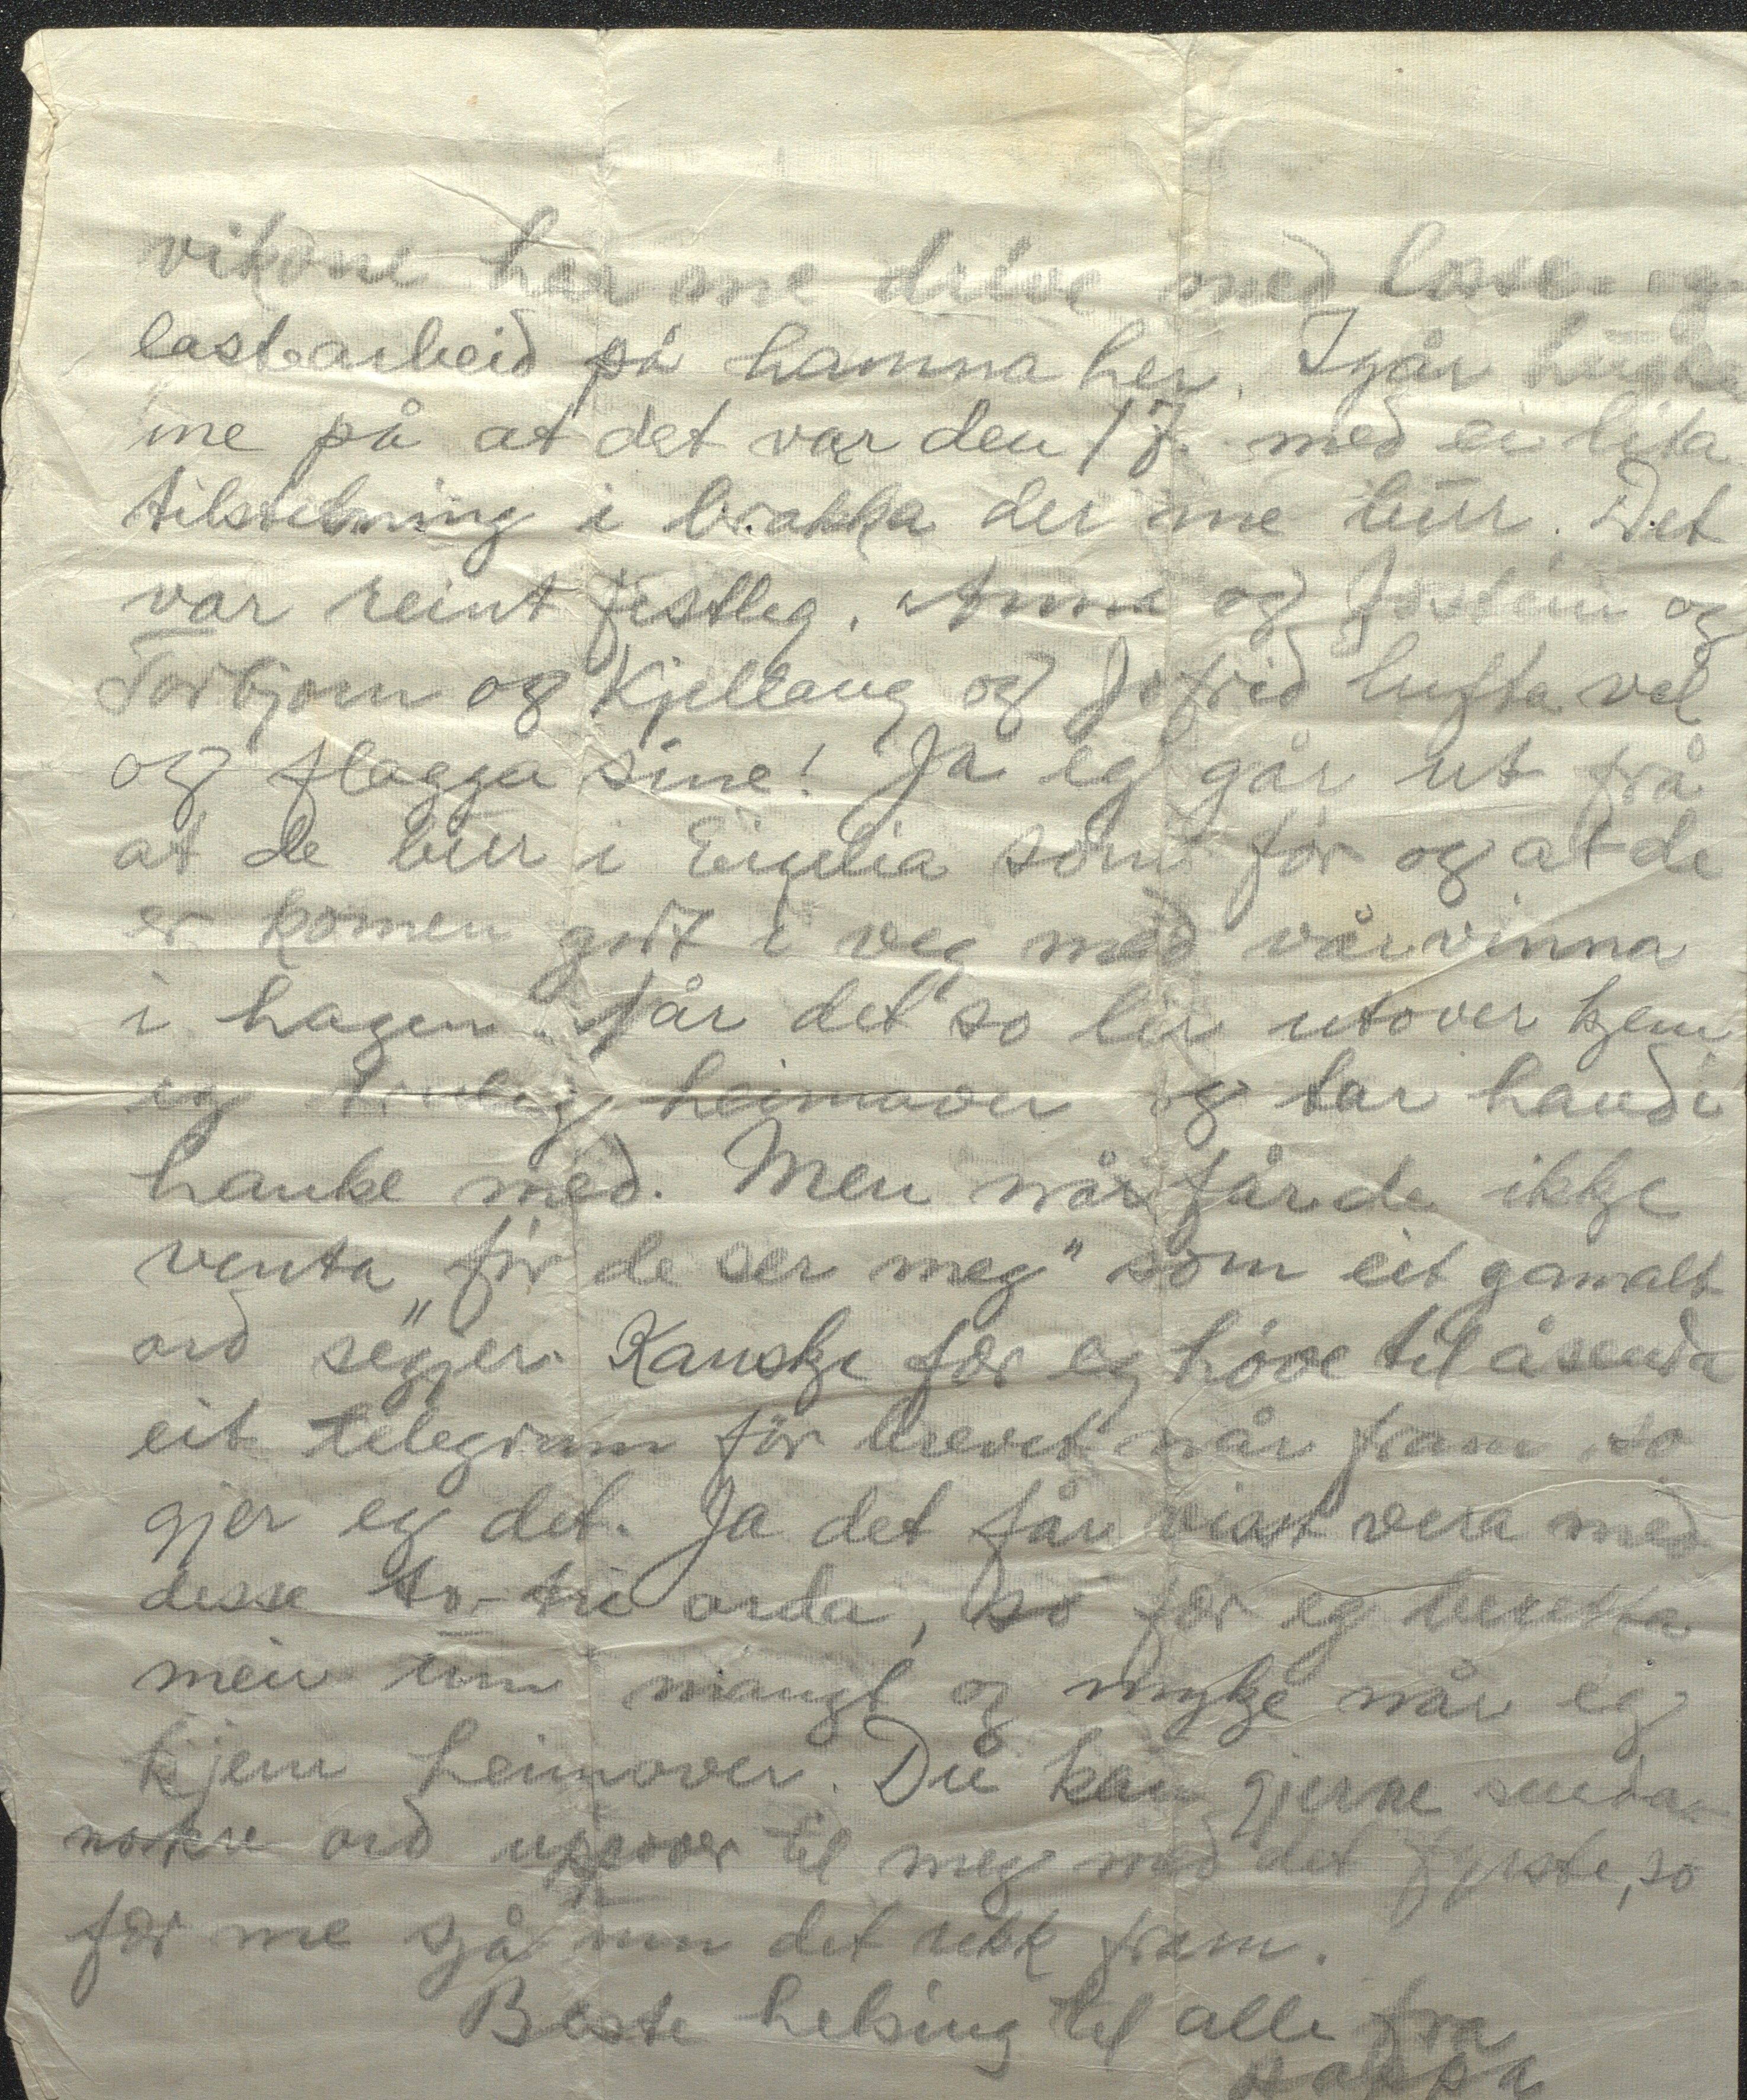 vikone har me drive med losse- og
lastearbeid på hamna her. Igår
me på at det var den 17. med ei lita
tilstelning i brakka der me bur. Det
var reint festleg. Anna og Jostein og
Torbjorn og Kjellaug og Jofrid lufta vel
og flagga sine! Ja eg går ut frå
at de bur i Eigelia som för og at de
er komen godt i veg med vårvinna
i hagen. Når det so lir utover kjem
eg truleg heimover og tar hand i
hanke med. Men når får de ikkje
venta "för de ser meg" som eit gamalt
ord segjer. Kanskje fær eg höve til å senda
eit telegram för brevet når fram so
gjer eg det. Ja det får visst vera med
desse to-tri orda, so fær eg beretta
meir um mangt og mykje når eg
kjem heimover. Du kan gjerne senda
nokre ord uppover til meg med det fyrste, so
fær me sjå um det rekk fram.
Beste helsing til alle fra
pappa